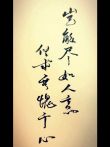 岂能尽如人意
但求无愧于心